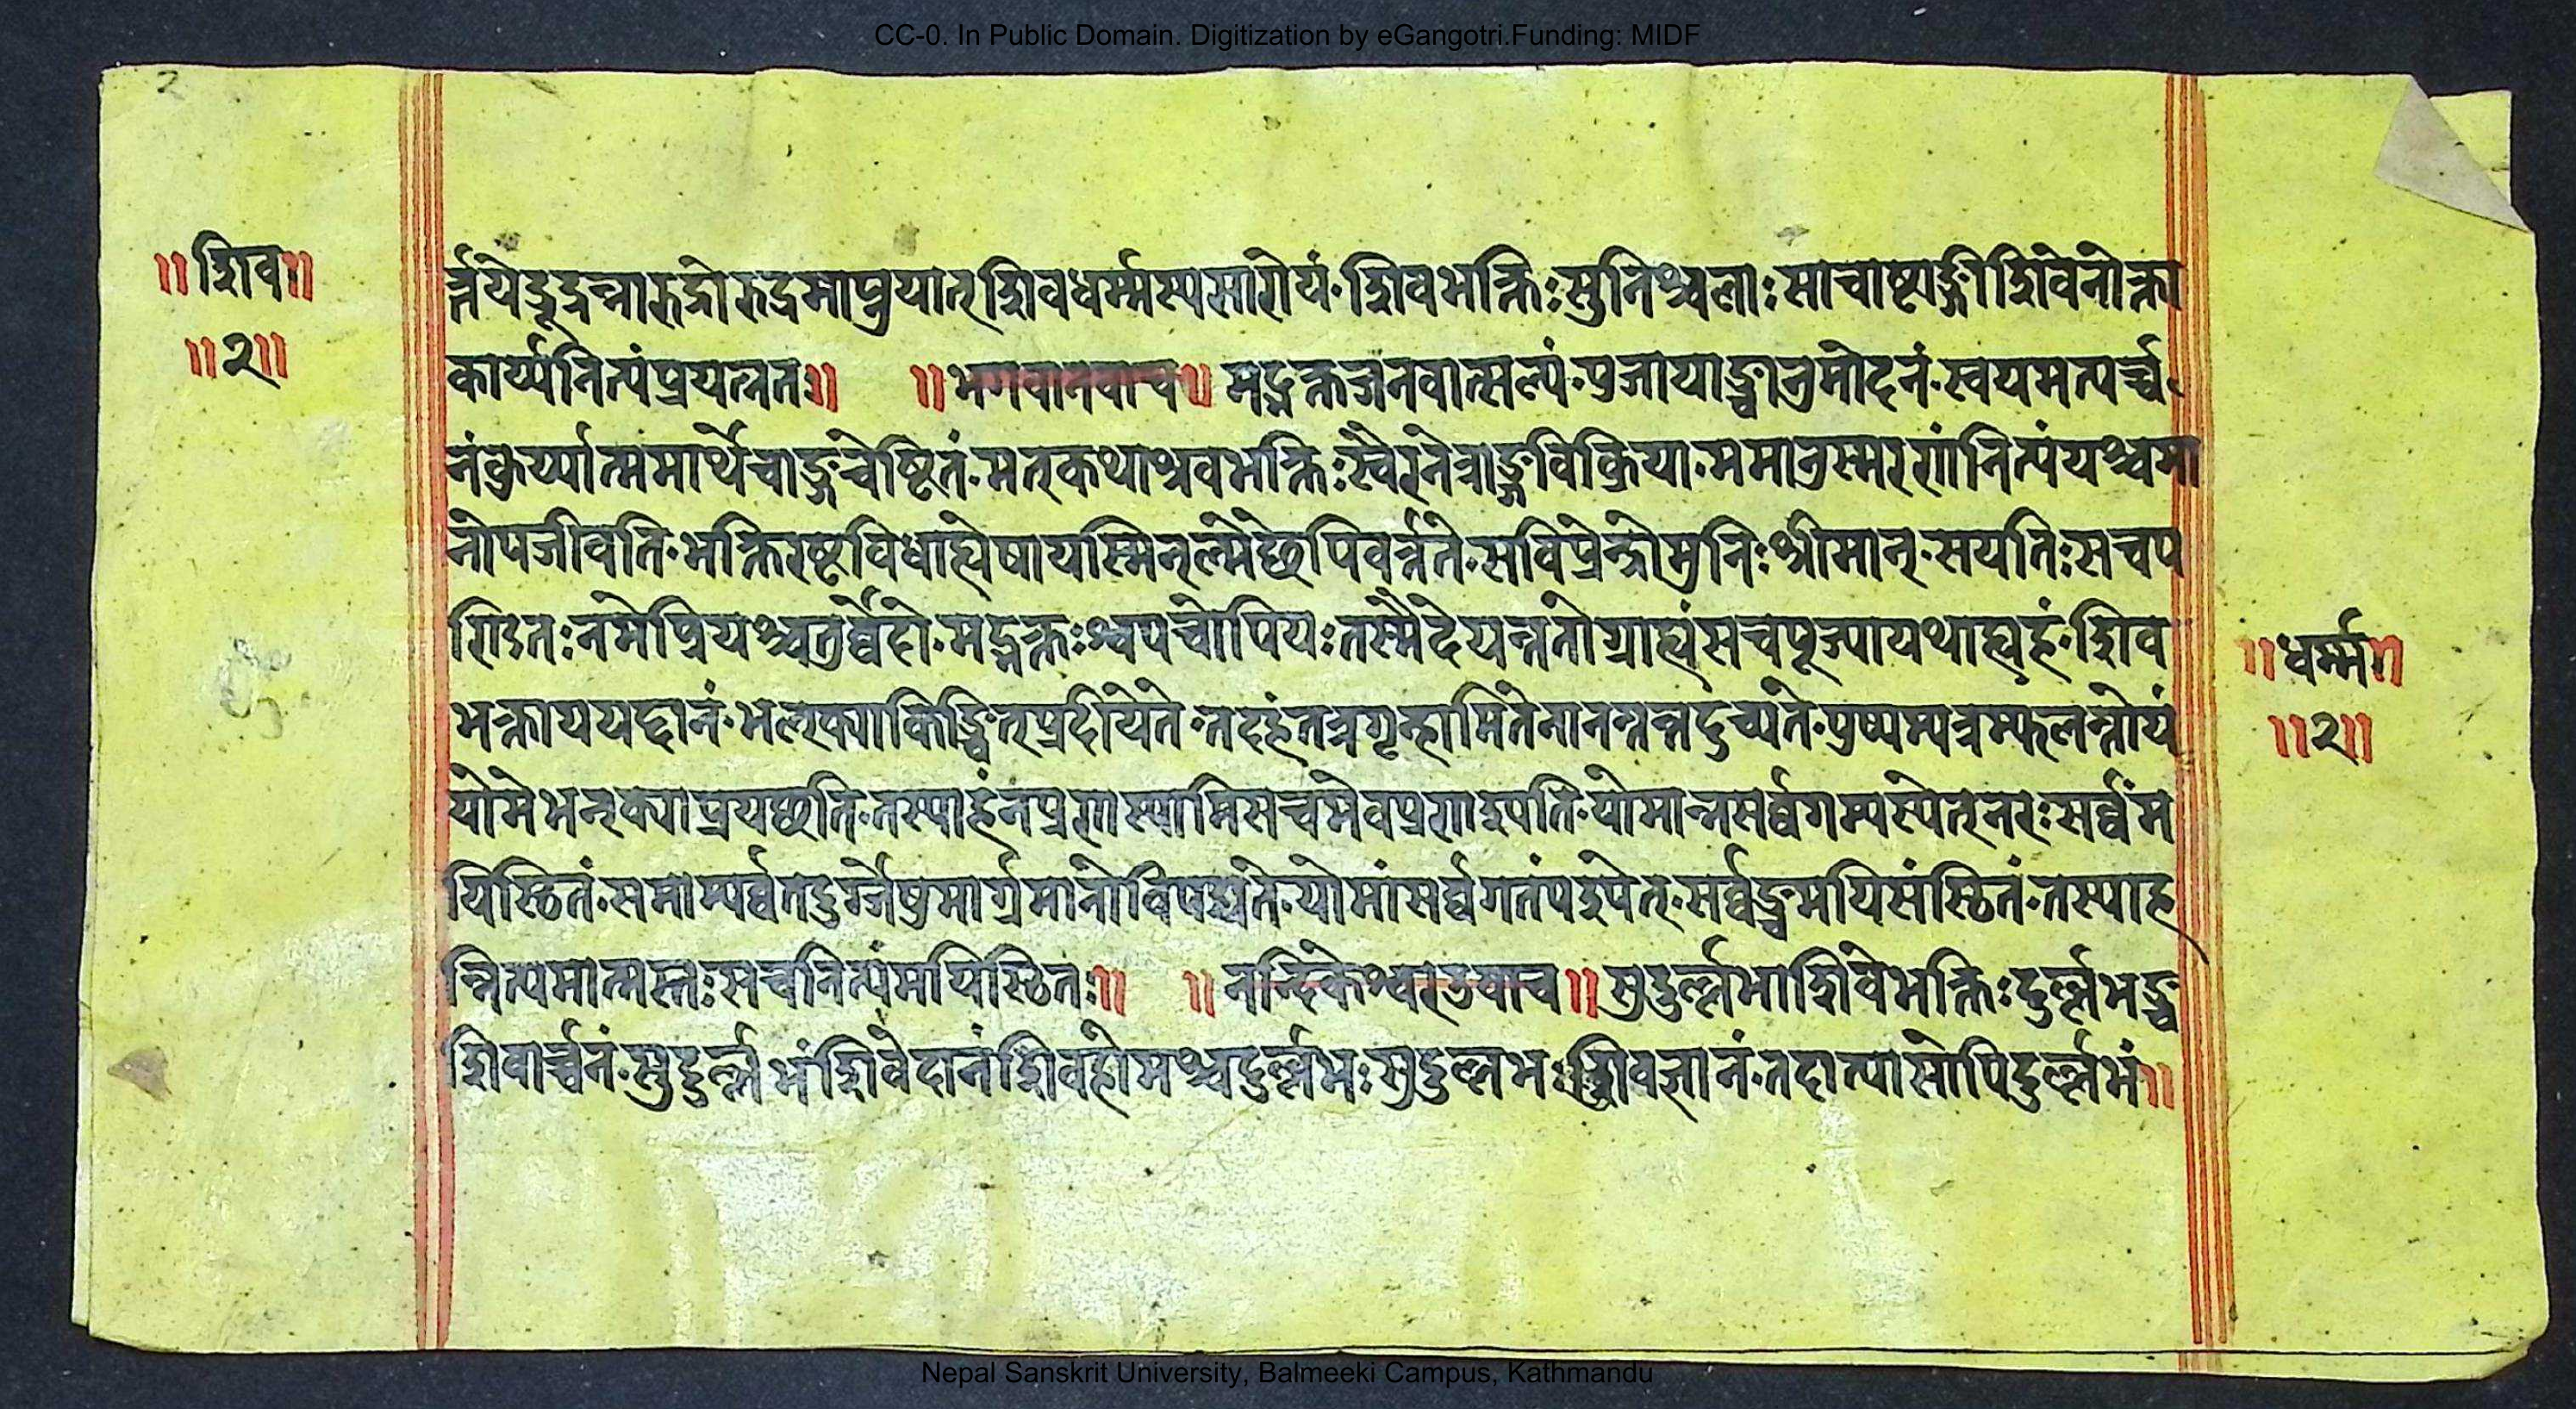 CC-0. In Public Domain. Digitization by eGangotri.Funding: MIDF
2
॥शिव॥
॥२॥
र्च्चयेद्रुद्रन्नारुद्रोरुद्रमाप्नुयात्शिवधर्म्मस्यसारोयं·शिवभक्तिःसुनिश्चलाः साचाष्टाङ्गीशिवेनोक्ता
कार्य्यनित्यंप्रयत्नतः॥ ॥भगवानुवाच॥ मद्भक्तजनवात्सल्यं·पूजायाञ्चानुमोदनं·स्वयमत्यर्च्च
नंकुर्य्यात्ममार्थेचाङ्गचेष्टितं·मत्कथाश्रवभक्तिःस्वैरनेत्राङ्गविक्रिया·ममानुस्मरणंनित्यंयश्चमा
नोपजीवति·भक्तिरष्टविधाह्येषायस्मिन्ल्मेछेपिवर्त्तते·सविप्रेन्द्रोमुनिःश्रीमान्·सयतिःसचप
ण्डितःनमेप्रियश्चतुर्व्वेदो·मद्भक्तःश्वपचोपियःतस्मैदेयन्ततोग्राह्यंसचपूज्यायथाह्यहं·शिव
भक्ताययद्दानं·भत्क्याकिञ्चित्प्रदीयेते·तदहंतत्रगृन्हामितेनानन्तन्तदुच्यते·पुष्पम्पत्रम्फलन्तोयं
योमेभत्क्याप्रयछति·तस्याहंनप्रणस्यामिसचमेवप्रणादृपति·योमान्तसर्व्वगम्पस्येत्नरःसर्व्वंम
यिस्थितं·समाम्पर्व्वतदुर्ग्गेषुमार्ग्रमानोविपद्यंते·योमांसर्व्वगतंपदृपेत्·सर्व्वञ्चमयिसंस्थितं·तस्याह
न्नित्यमात्मस्तःसचनित्यंमयिस्थितः॥ ॥नन्दिकेश्वरउवाच॥सुदुर्ल्लभाशिवेभक्तिःदुर्ल्लभञ्च
शिवार्च्चनं·सुदुर्ल्लभंशिवेदानंशिवहोमश्चदुर्ल्लभःसुदुल्लभःशिवज्ञानं·तदात्यासोपिदुर्ल्लभं॥
॥धर्म्म॥
॥२॥
Nepal Sanskrit University, Balmeeki Campus, Kathmandu